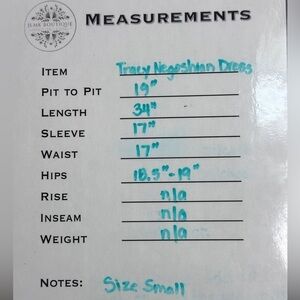 JLMK BOUTIQUE
MEASUREMENTS
ITEM Tracy Negoshian Dress
PIT TO PIT 19"
LENGTH 34"
SLEEVE 17"
WAIST 17"
HIPS 18.5"-19"
RISE n/a
INSEAM n/a
WEIGHT n/a
NOTES: Size Small